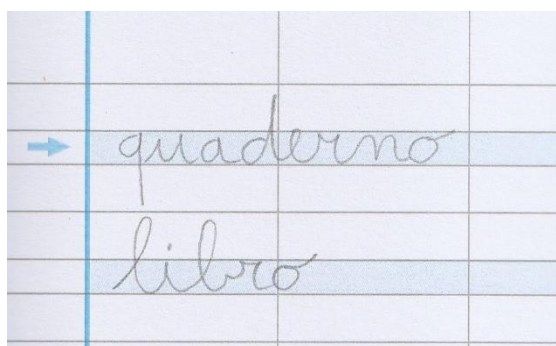 quaderno
libro